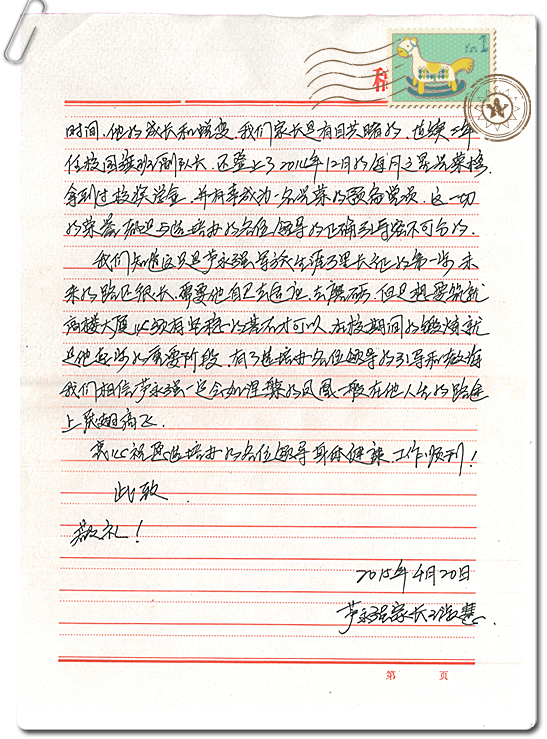 稿
时间，他的成长和蜕变，我们家长是有目共睹的，连续二年
任校国旗班副队长，还登上了2014年12月的每月之星光荣榜，
拿到过校奖学金，并有幸成为一名光荣的预备党员，这一切
的荣誉，都是与选培办的各位领导的正确引导密不可分的。
我们知道这只是芦永强导弹生涯万里长征的第一步，未
来的路还很长，需要他自己去适应，去磨砺，但是想要筑就
高楼大厦必须有坚稳的基石才可以，在校期间的锻炼就
是他起步的重要阶段，有了选培办各位领导的引导和教诲
我们相信芦永强一定会如涅槃的凤凰一般在他人生的路途
上展翅高飞。
衷心祝愿选培办的各位领导身体健康，工作顺利！
此致
敬礼！
2015年4月20日
芦永强家长
第 页